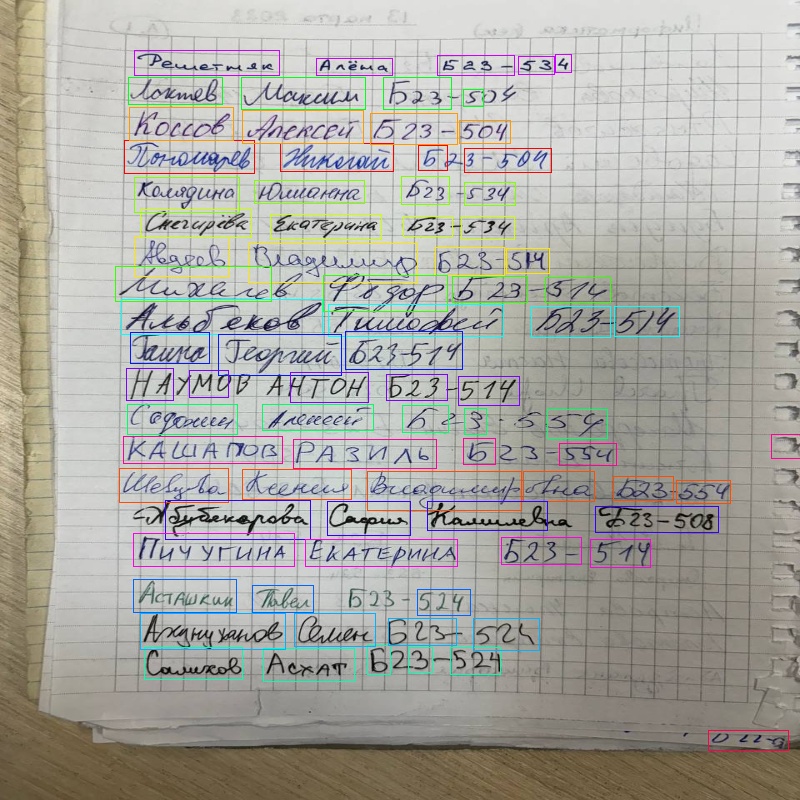 Решетняк Алёна Б23-534
Локтев Максим Б23-504
Коссов Алексей Б23-504
Пономарев Николай Б23-504
Колядина Юлианна Б23-534
Снегирёва Екатерина Б23-534
Авдеев Владимир Б23-514
Михалев Фёдор Б23-514
Альбеков Тимофей Б23-514
Гаина Георгий Б23-514
НАУМОВ АНТОН Б23-514
Алексей Б23-554
КАШАПОВ РАЗИЛЬ Б23-554
Шевцова Ксения Владимировна Б23-554
Абубекарова Сафия Камилевна Б23-508
ПИЧУГИНА ЕКАТЕРИНА Б23-514
Асташкин Павел Б23-524
Семен Б23-524
Салихов Асхат Б23-524